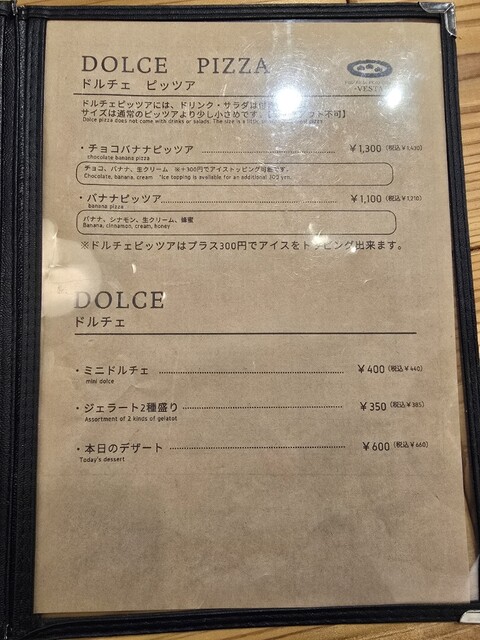 DOLCE PIZZA
ドルチェ ピッツア
VESTA
ドルチェピッツアには、ドリンク・サラダは
サイズは通常のピッツアより少し小さめです。【 不可】
Dolce pizza does not come with drinks or salads. The size is a little pizza
・チョコバナナピッツア ¥1,300 (税込¥1,430)
chocolate banana pizza
チョコ、バナナ、生クリーム ※+300円でアイストッピング可能です。
Chocolate, banana, cream *Ice topping is available for an additional 300 yen.
・バナナピッツア ¥1,100 (税込¥1,210)
banana pizza
バナナ、シナモン、生クリーム、蜂蜜
Banana, cinnamon, cream, honey
※ドルチェピッツアはプラス300円でアイスをトッピング出来ます。
DOLCE
ドルチェ
・ミニドルチェ ¥400 (税込¥440)
mini dolce
・ジェラート2種盛り ¥350 (税込¥385)
Assortment of 2 kinds of gelatot
・本日のデザート ¥600 (税込¥660)
Today's dessert